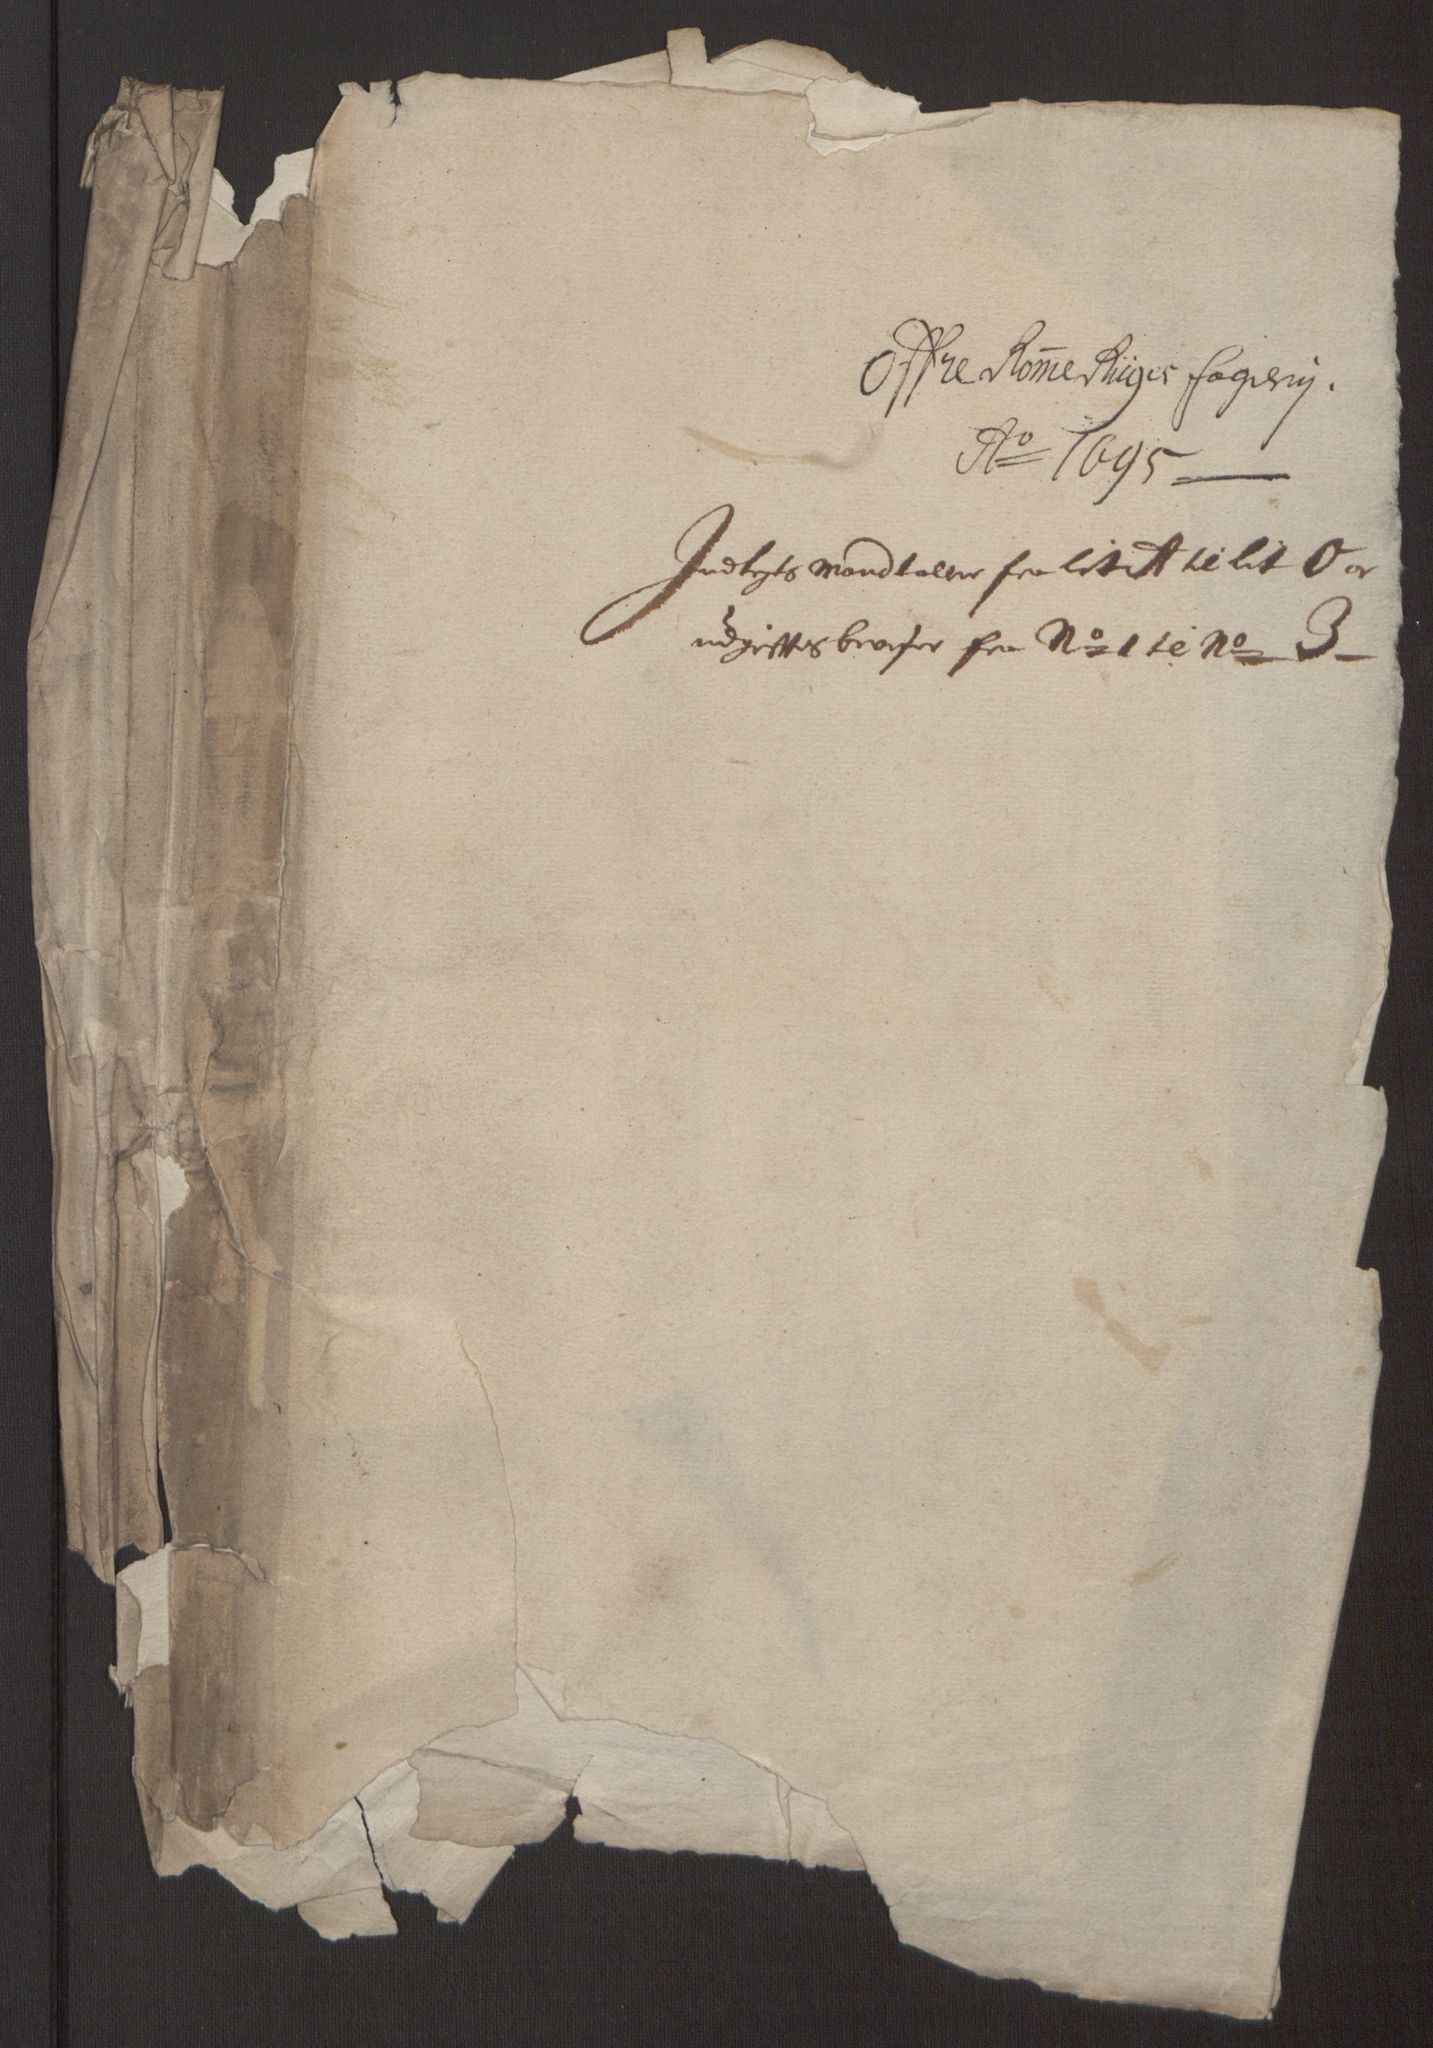 Offre Rom̅e Riiges fogderij.
Ao 1695
Indtegts Mandtaller fra lit A til lit O or
udgifftes beviser fra No 1 til No 3